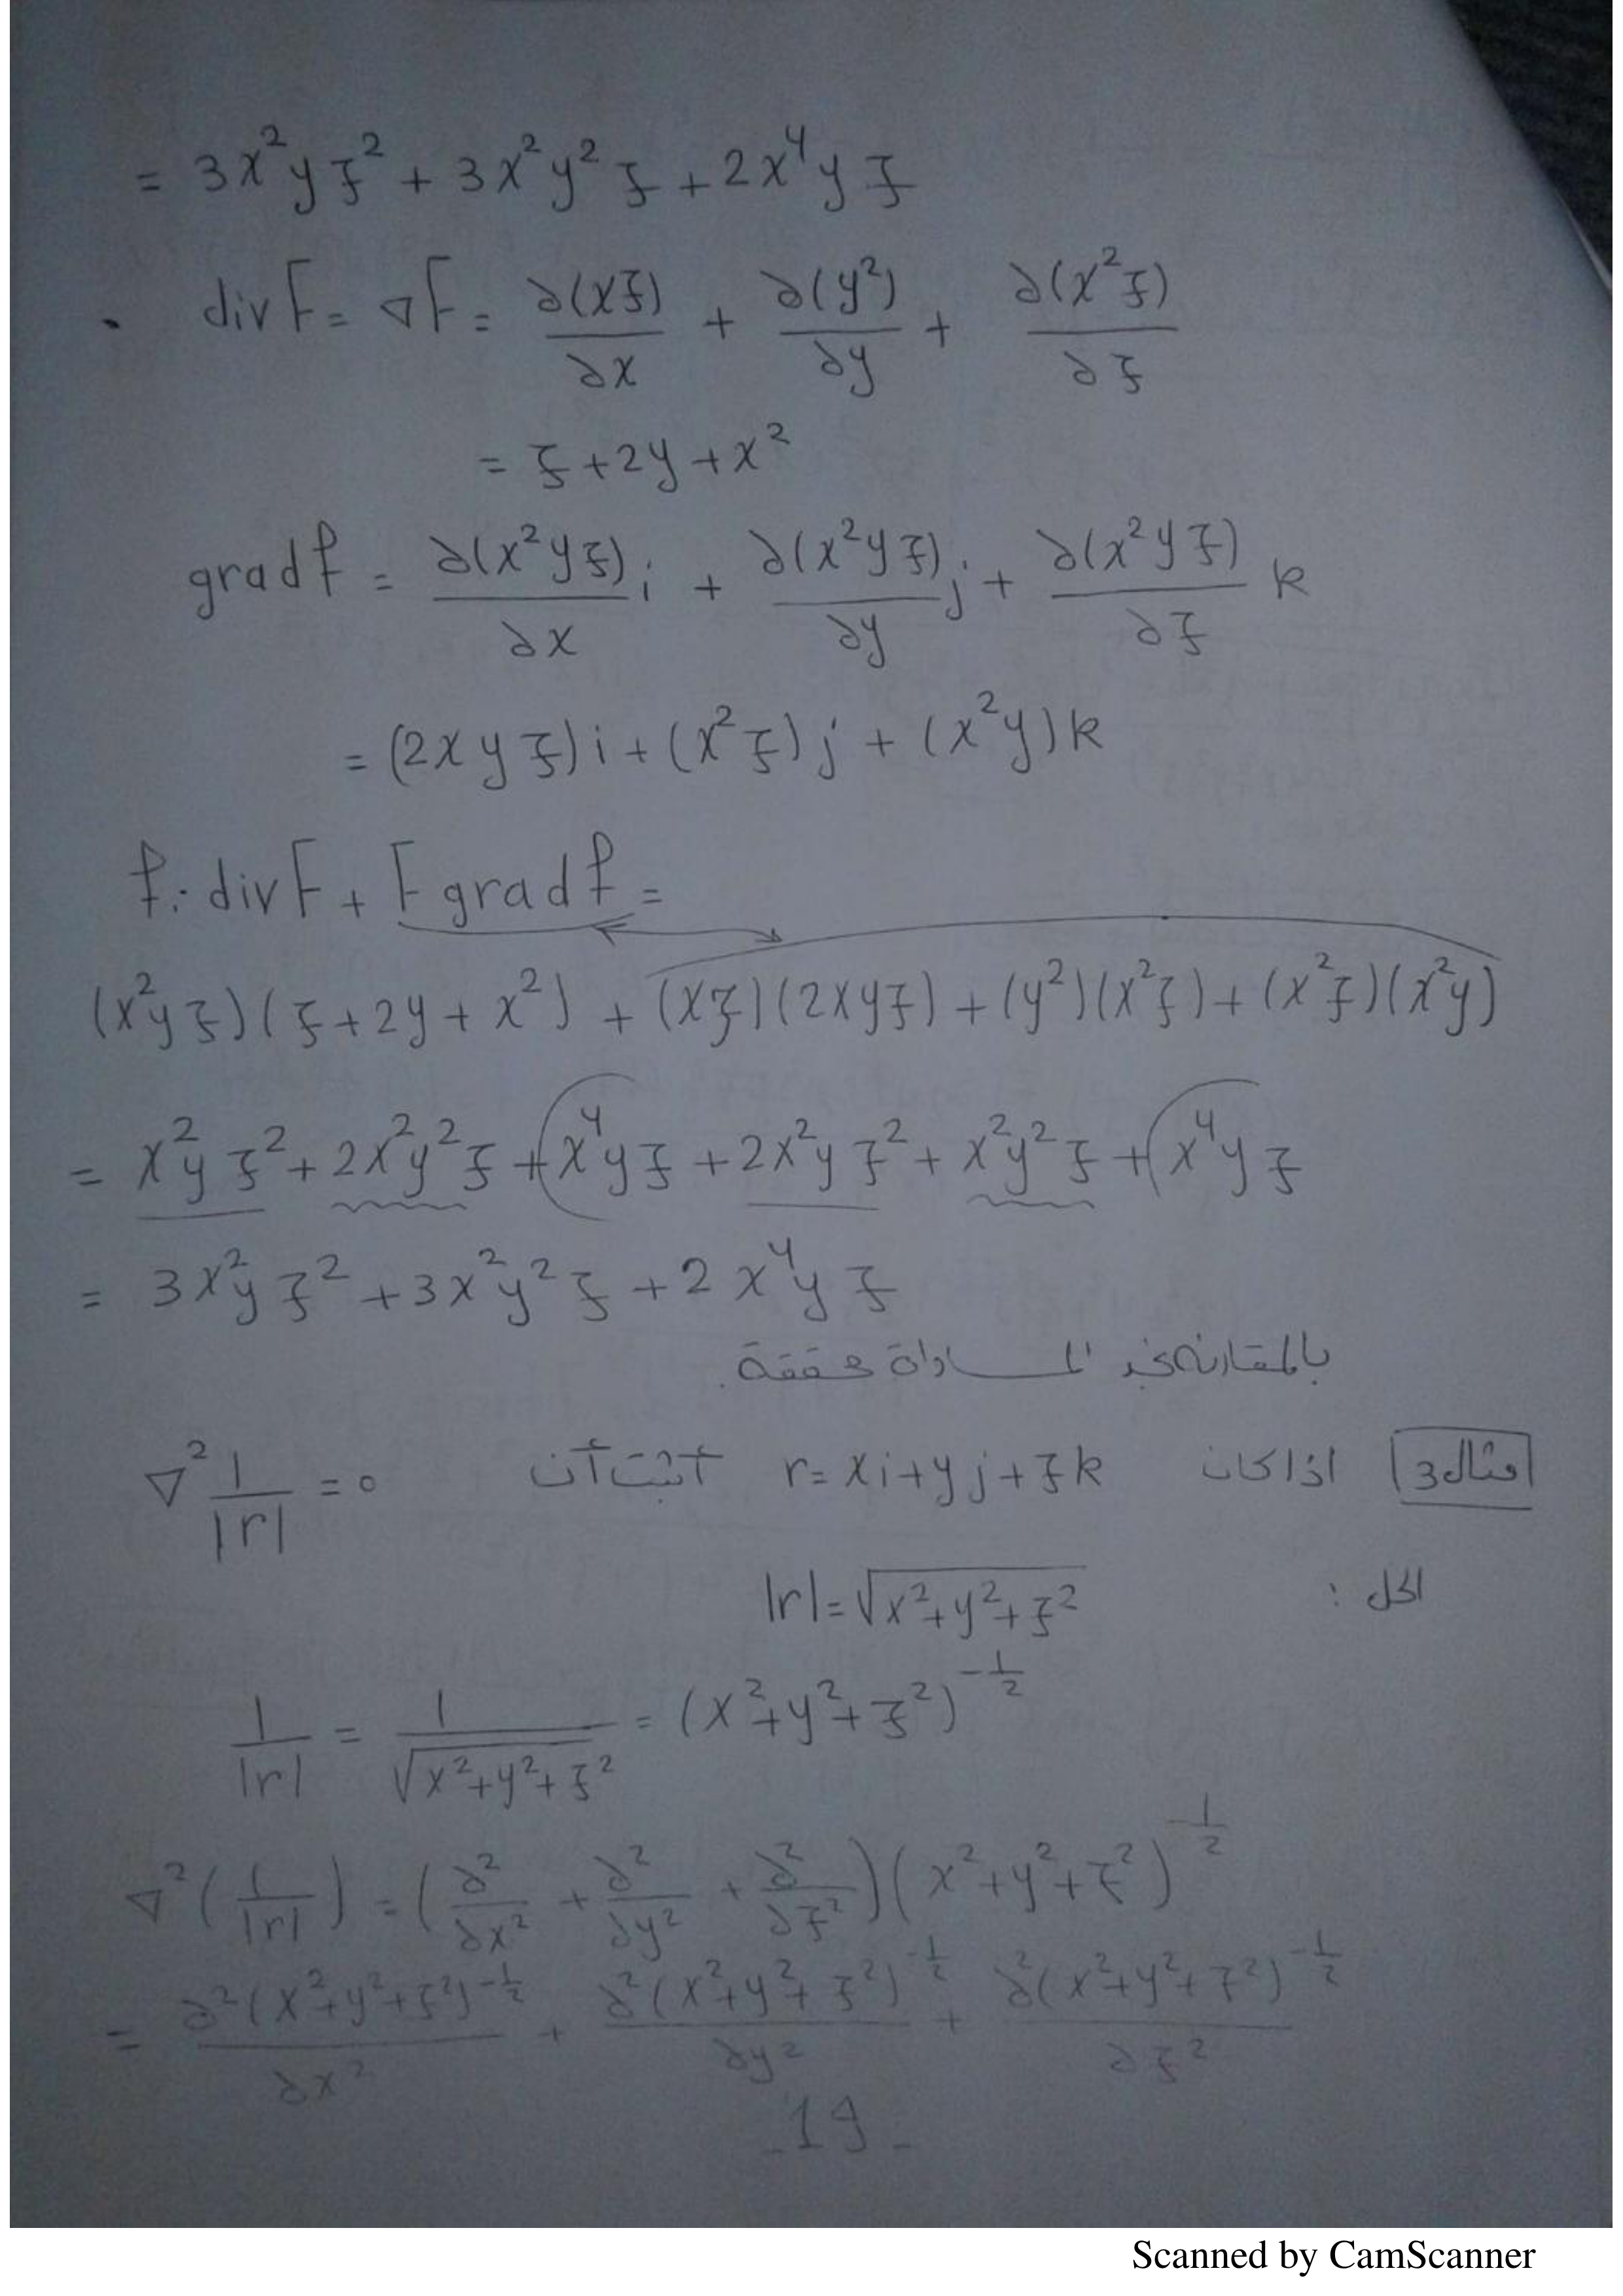 = 3x²yz² + 3x²y²z + 2x⁴yz
. div F = ∇F = ∂(xz)/∂x + ∂(y²)/∂y + ∂(x²z)/∂z
= z + 2y + x²
grad f = ∂(x²yz)/∂x i + ∂(x²yz)/∂y j + ∂(x²yz)/∂z k
= (2xyz)i + (x²z)j + (x²y)k
f. div F + F grad f =
(x²yz)(z + 2y + x²) + (xz)(2xyz) + (y²)(x²z) + (x²z)(x²y)
= x²yz² + 2x²y²z + x⁴yz + 2x²yz² + x²y²z + x⁴yz
= 3x²yz² + 3x²y²z + 2x⁴yz
بالمقارنة نجد المساواة محققة.
مثال 3 اذا كان r = xi + yj + zk أثبت أن ∇² 1/|r| = 0
الحل : |r| = √(x²+y²+z²)
1/|r| = 1/√(x²+y²+z²) = (x²+y²+z²)^(-1/2)
∇²(1/|r|) = (∂²/∂x² + ∂²/∂y² + ∂²/∂z²)(x²+y²+z²)^(-1/2)
= ∂²(x²+y²+z²)^(-1/2)/∂x² + ∂²(x²+y²+z²)^(-1/2)/∂y² + ∂²(x²+y²+z²)^(-1/2)/∂z²
-19-
Scanned by CamScanner